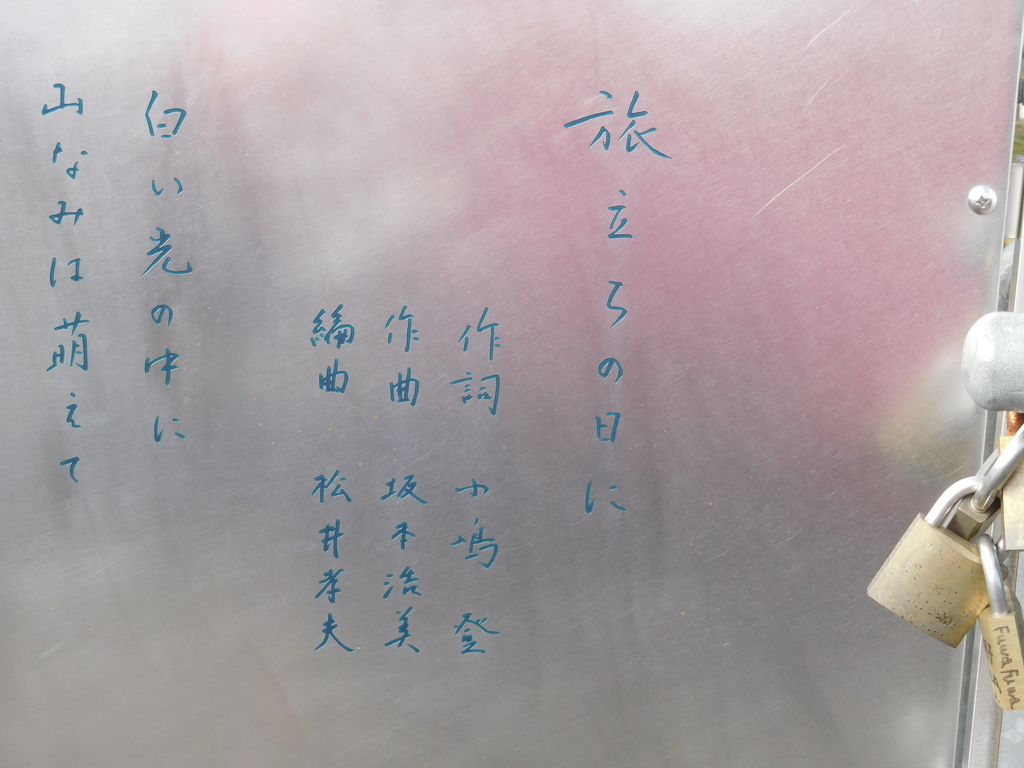 旅立ちの日に
作詞 小嶋 登
作曲 坂本浩美
編曲 松井孝夫
白い光の中に
山なみは萌えて
Fuwa Fuwa